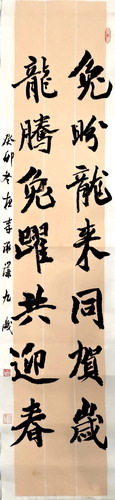 兔盼龍来同賀歲
龍騰兔躍共迎春
癸卯冬 李 九歲